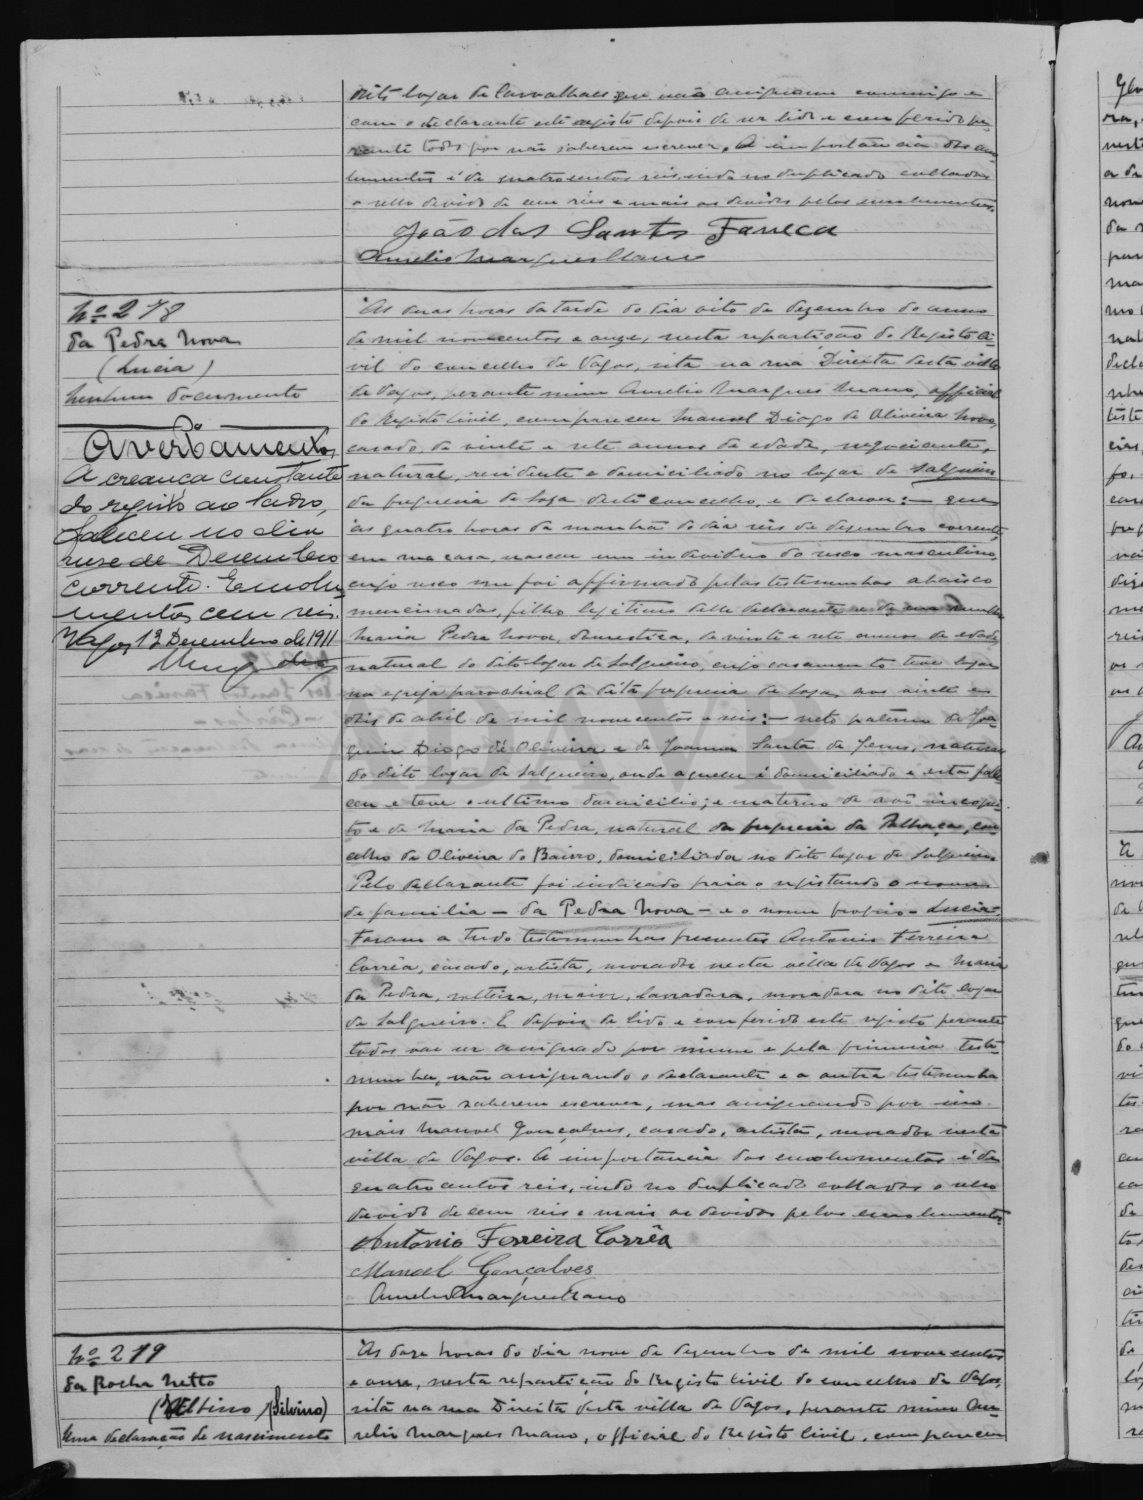 dito logar de Carvalhaes que não assignaram commigo e
com o declarante este registo depois de ser lido e conferido pe-
rante todos por não saberem escrever. A importancia dos emo-
lumentos é de quatrocentos reis, indo no duplicado collados
o sello devido de cem reis e mais os devidos pelos emolumentos.
João dos Santos Faneca
Aurelio Marques Mano
Nº 278
da Pedra Nova
(Lucia)
Nenhum documento
Averbamentos
A creança constante
do registo ao lado,
faleceu no dia
de Desembro
corrente. Emolu-
mentos cem reis.
Vagos 13 Desembro de 1911
As duas horas da tarde do dia oito de dezembro do anno
de mil novecentos e onze, nesta repartição do Registo Ci-
vil do concelho de Vagos, sita na rua Direita desta villa
de Vagos, perante mim Aurelio Marques Mano, official
do Registo Civil, compareceu Manoel Diogo de Oliveira Novo,
casado, de vinte e sete annos de edade, negociante,
natural, residente e domiciliado no logar de Salgueiro
da freguesia de Soza deste concelho, e declarou: — que
ás quatro horas da manhã do dia seis de dezembro corrente,
em sua casa, nasceu um individuo do sexo masculino,
cujo sexo me foi affirmado pelas testemunhas abaixo
mencionadas, filho legitimo delle declarante e de sua mulher
Maria Pedra Nova, domestica, de vinte e sete annos de edade,
natural do dito logar de Salgueiro, cujo casamento teve logar
na egreja parochial da dita freguesia de Soza, aos vinte e
dois de abril de mil novecentos e seis: — neto paterno de Joa-
quim Diogo de Oliveira e de Joanna Santa de Jesus, naturaes
do dito logar de Salgueiro, onde aquelle é domiciliado e esta falle-
ceu e teve o ultimo domicilio; e materno de avô incogni-
to e de Maria da Pedra, natural da freguesia da Palhaça, con-
celho de Oliveira do Bairro, domiciliada no dito logar de Salgueiro.
Pelo declarante foi indicado para o registando o nome
de familia — da Pedra Nova — e o nome proprio — Lucia —
Foram a tudo testemunhas presentes Antonio Ferreira
Corrêa, casado, artista, morador nesta villa de Vagos e Maria
da Pedra, solteira, maior, lavradora, moradora no dito logar
de Salgueiro. E depois de lido e conferido este registo perante
todos vae ser assignado por mim e pela primeira teste-
munha, não assignando o declarante e a outra testemunha
por não saberem escrever, mas assignando por
mais Manoel Gonçalves, casado, artista, morador nesta
villa de Vagos. A importancia dos emolumentos é de
quatrocentos reis, indo no duplicado collados o sello
devido de cem reis e mais os devidos pelos emolumentos
Antonio Ferreira Corrêa
Manoel Gonçalves
Aurelio Marques Mano
ADAVR
Nº 279
da Rocha Netto
(Albino) (Silvino)
Uma declaração de nascimento
As doze horas do dia nove de dezembro de mil novecentos
e onze, nesta repartição do Registo Civil do concelho de Vagos,
sita na rua Direita desta villa de Vagos, perante mim Au-
relio Marques Mano, official do Registo Civil, compareceu